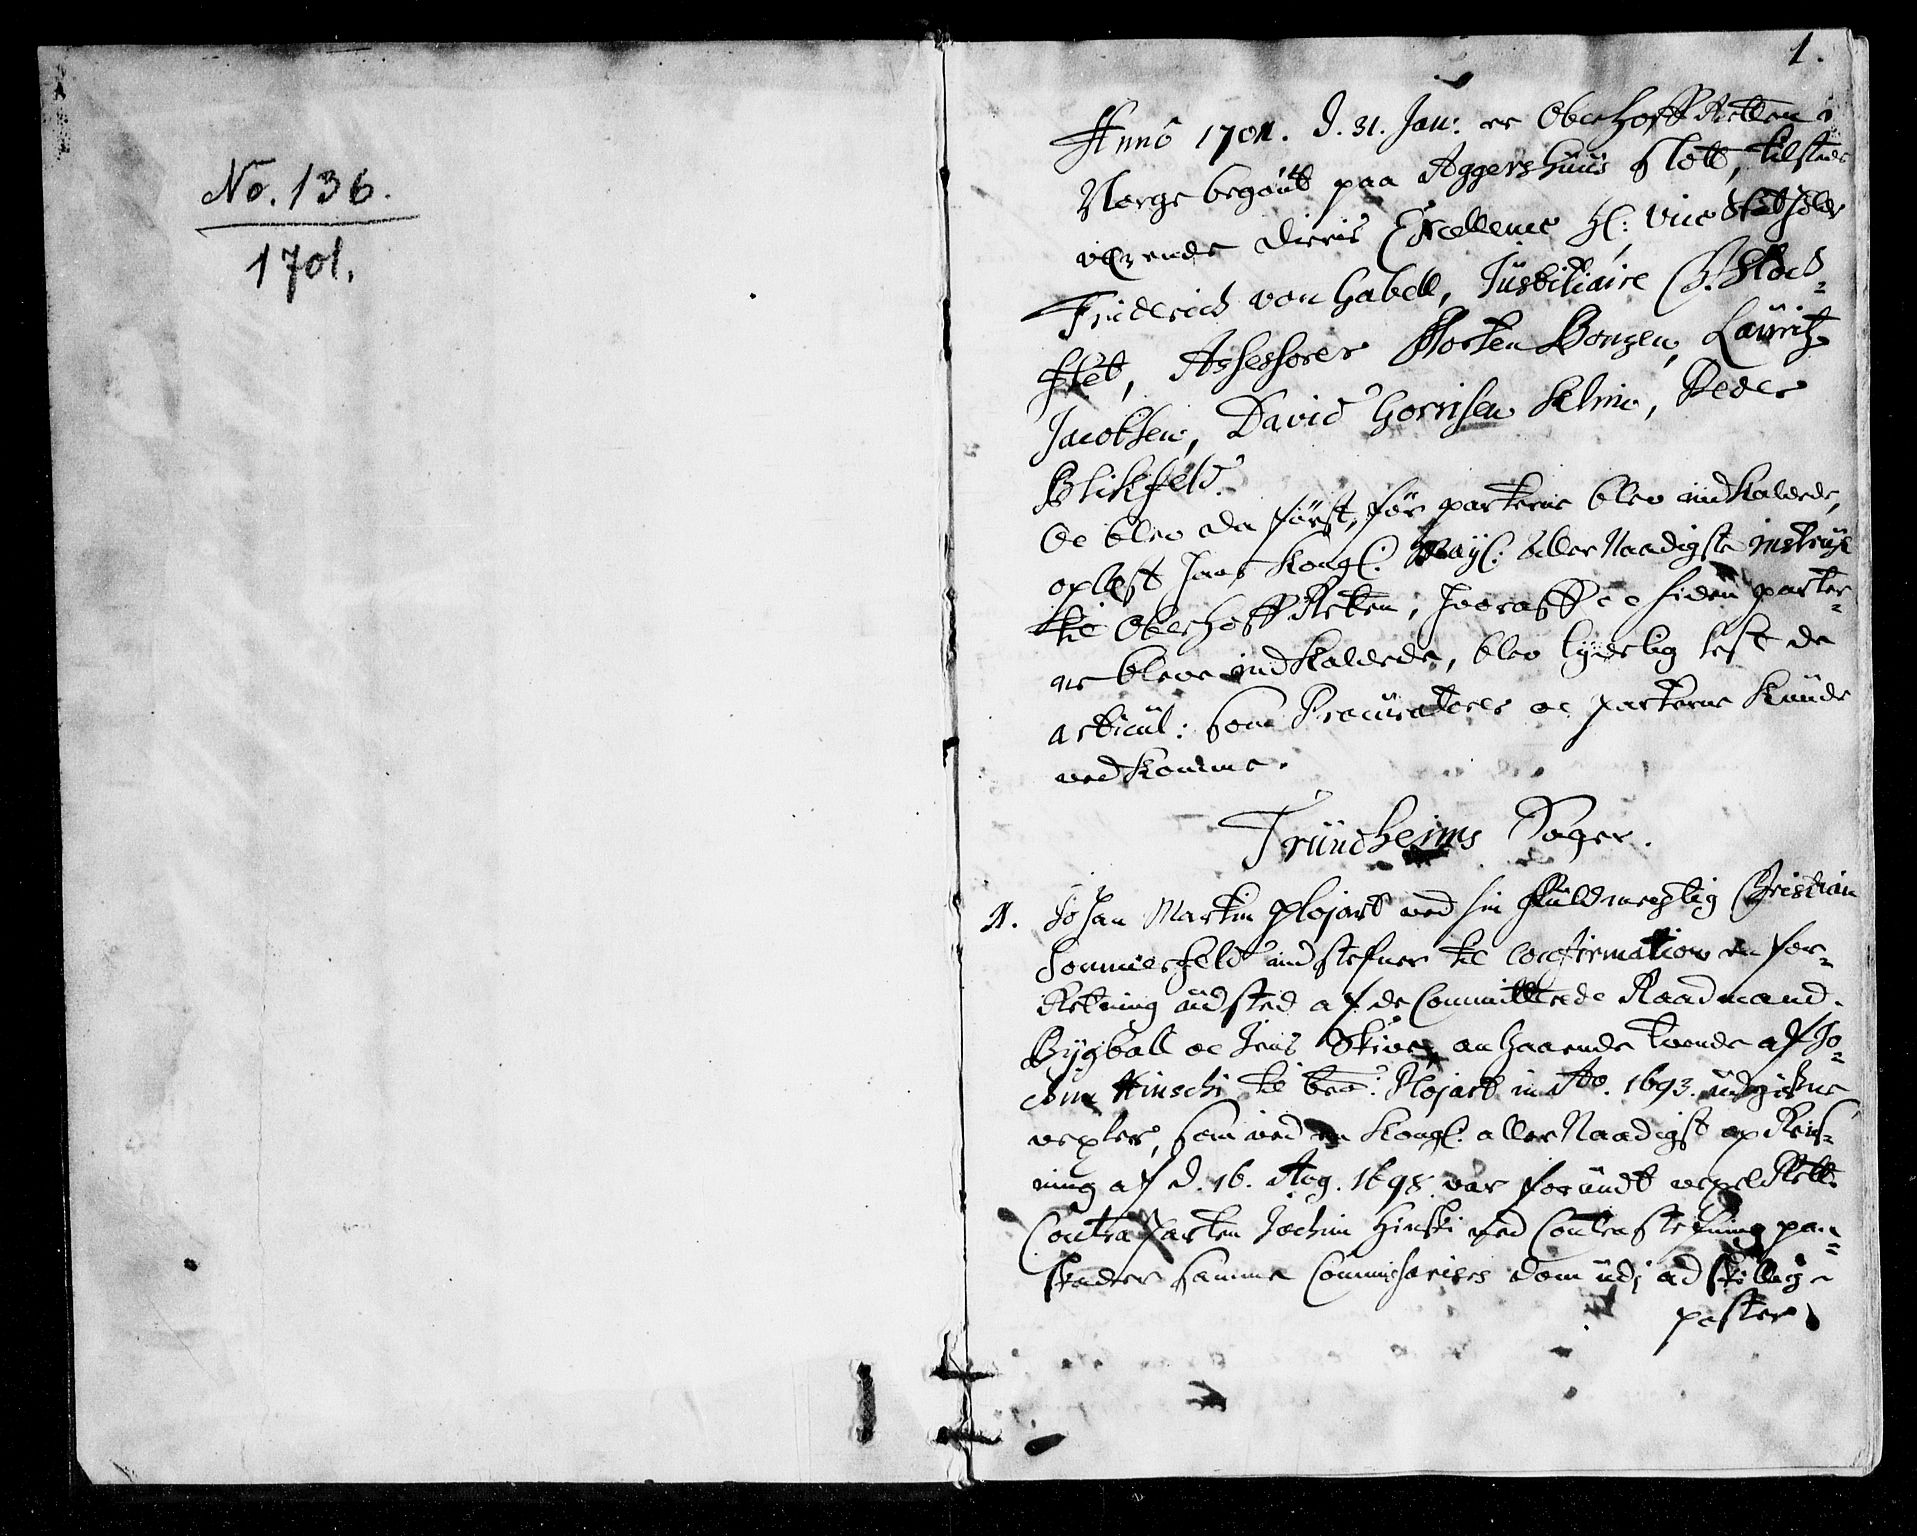 No. 136.
1701.
1.
Anno 1701. d. 31. Jan: er OberHoffRetten i
Norge begÿnt paa AggersHuus Slott, tilstede
værende deris Excellence H: Vice Stathold
Friderich von Gabell, Justitiaire C. Stoc-
flet, Assessorer Morten Bonzen, Lauritz
Jacobsen, David Gorrisen Klim, Peder
Blikfeld.
Oc blev da først, før parterne blev indkalede,
oplest Hans Kongl: Mayl: aller Naadigste instrux
til OberHoffRetten, hvoreffter siden parter-
ne bleve indkaldede, blev lydelig lest de
articul: som Procuratores oc parterne kunde
vedkomme.
Trundheims Sager.
1. Johan Martin Plojart ved sin fuldmegtig Christian
Sommerfeld indstefner til confirmation en for-
Retning udsted af de Committerede Raadmand
Bygball oc Jens Skive, anhaarende tvende af Jo-
chim Hinschi til bem: Plojart in Ao. 1693. udgifne
vexler, som ved en Kongl: aller Naadigst opReis-
ning af d. 16. Aug. 1698. var forundt vexel Rett.
Contraparten Jochim Hinski ved Contrastefning paa-
skader samme Commissariers dom udj adskillige
poster